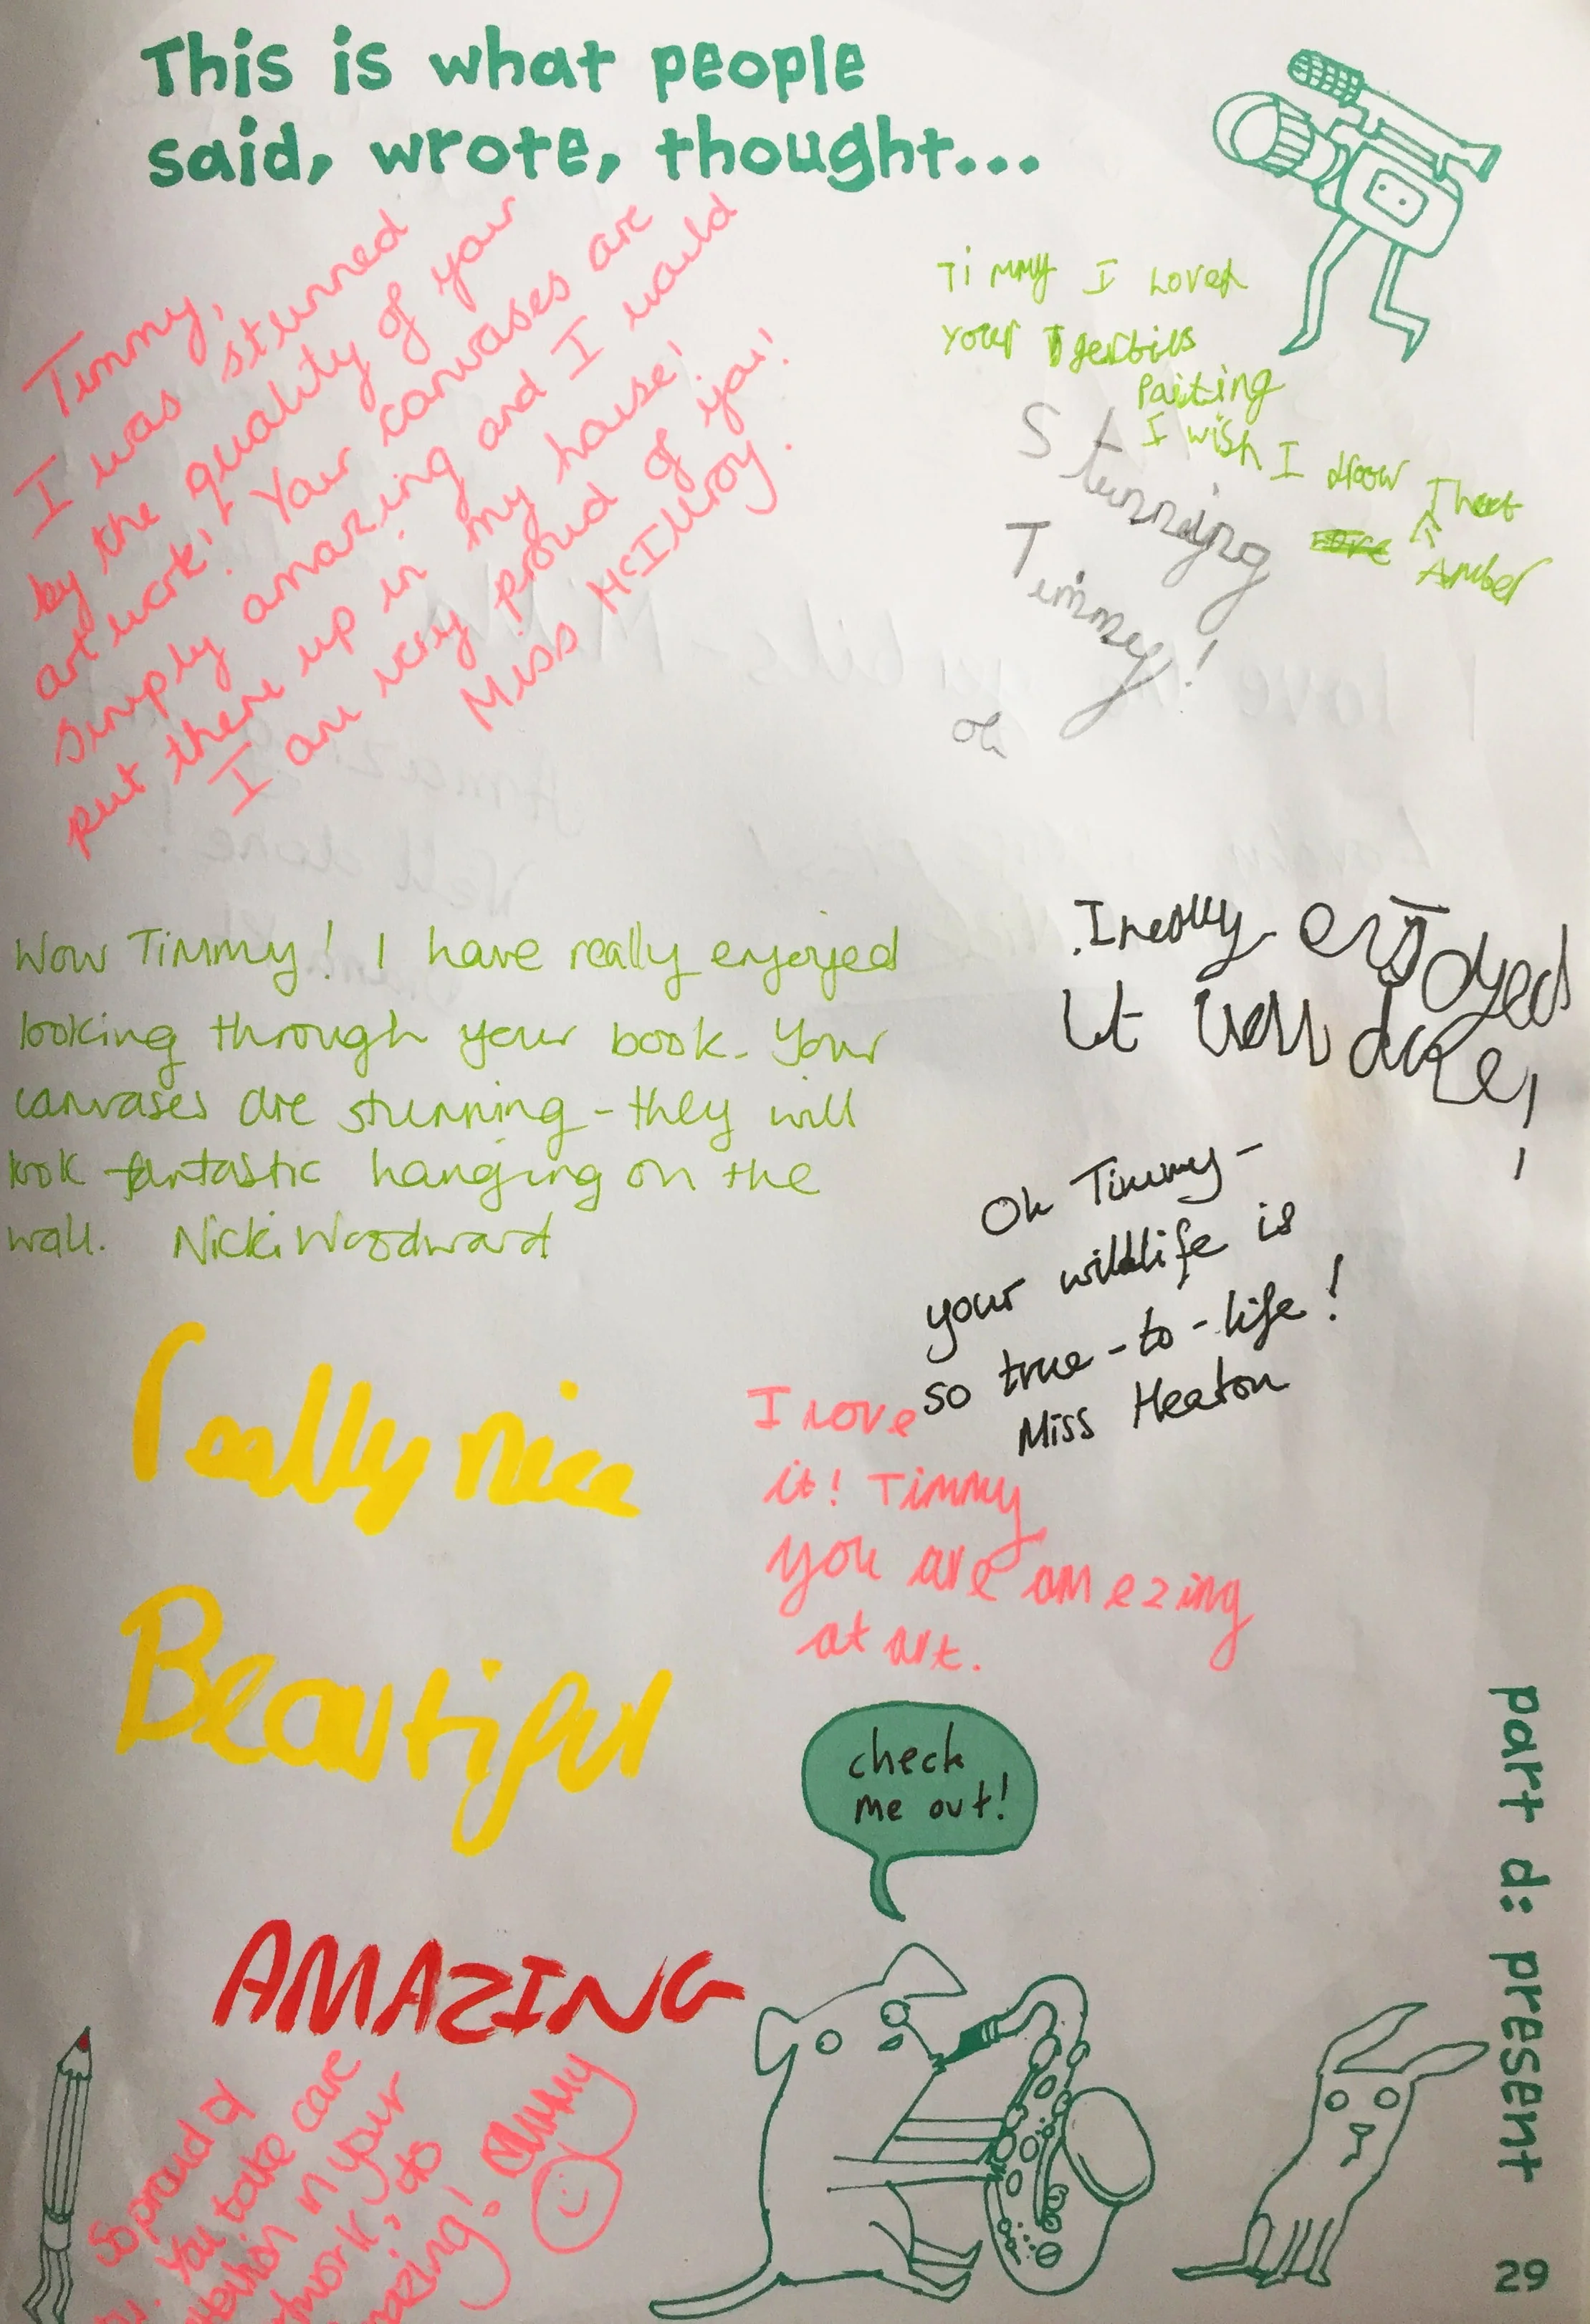 This is what people
said, wrote, thought...
Timmy,
I was stunned
by the quality of your
art work! Your canvases are
simply amazing and I would
put them up in my house!
I am very proud of you!
Miss McIlroy.
Timmy I Loved
your gerbils
Paiting
I wish I
Amber
Stunning
Timmy!
Wow Timmy! I have really enjoyed
looking through your book. Your
canvases are stunning - they will
look fantastic hanging on the
wall. Nicki Woodward
I really enjoyed
it well done!
Oh Timmy -
your wildlife is
so true-to-life!
Miss Heaton
I love
it! Timmy
you are amezing
at art.
really nice
Beautiful
AMAZING
So proud of
You take care
in your
check
me out!
part d: present
29